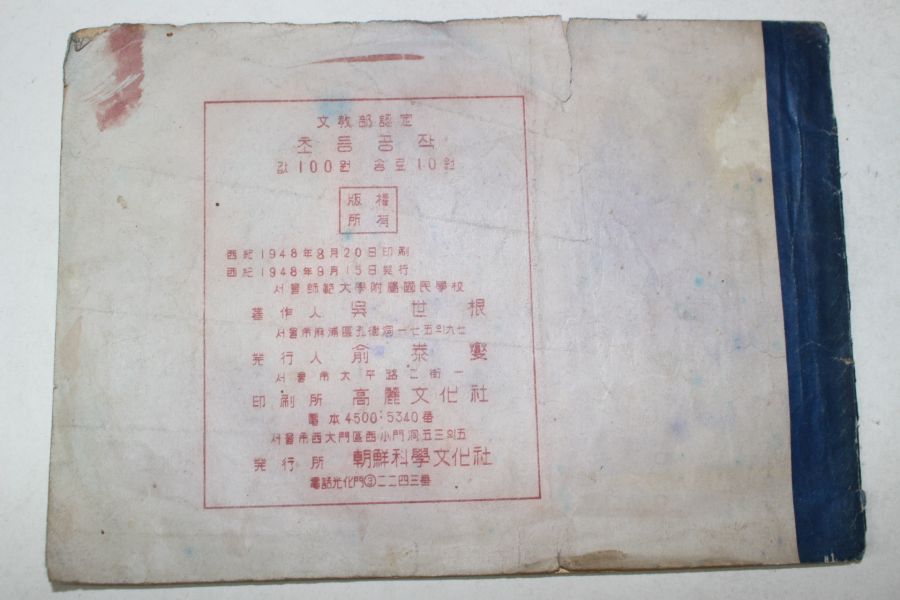 文敎部認定
초등공작
값100원 송료10원
版權
所有
西紀1948年8月20日印刷
西紀1948年9月15日発行
서울師範大學附屬國民學校
著作人 吳世根
서울市麻浦區孔德洞一七五의六七
発行人 俞泰燮
서울市太平路二街一
印刷所 高麗文化社
電本4500;5340番
서울市西大門區西小門洞五三의五
発行所 朝鮮科學文化社
電話光化門③二二四三番